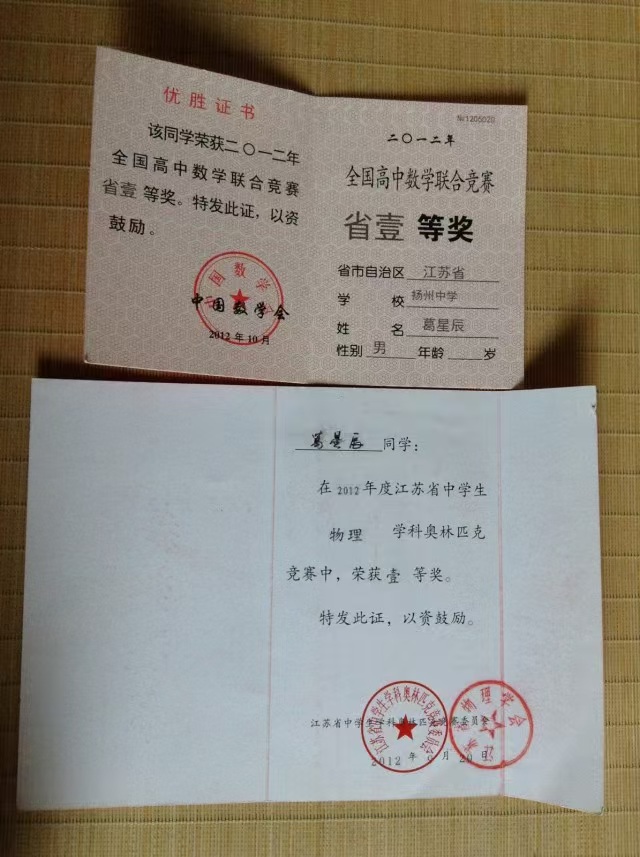 优胜证书
该同学荣获二〇一二年
全国高中数学联合竞赛
省壹 等奖。特发此证，以资
鼓励。
中国数学会
2012 年 10 月
№1205020
二〇一二年
全国高中数学联合竞赛
省壹 等奖
省市自治区 江苏省
学 校 扬州中学
姓 名 葛星辰
性别 男 年龄 岁
葛星辰 同学：
在 2012 年度江苏省中学生
物理 学科奥林匹克
竞赛中，荣获壹 等奖。
特发此证，以资鼓励。
江苏省中学生学科奥林匹克竞赛委员会
江苏省中学生学科奥林匹克竞赛委员会
物理学会
2012 年 月 20 日